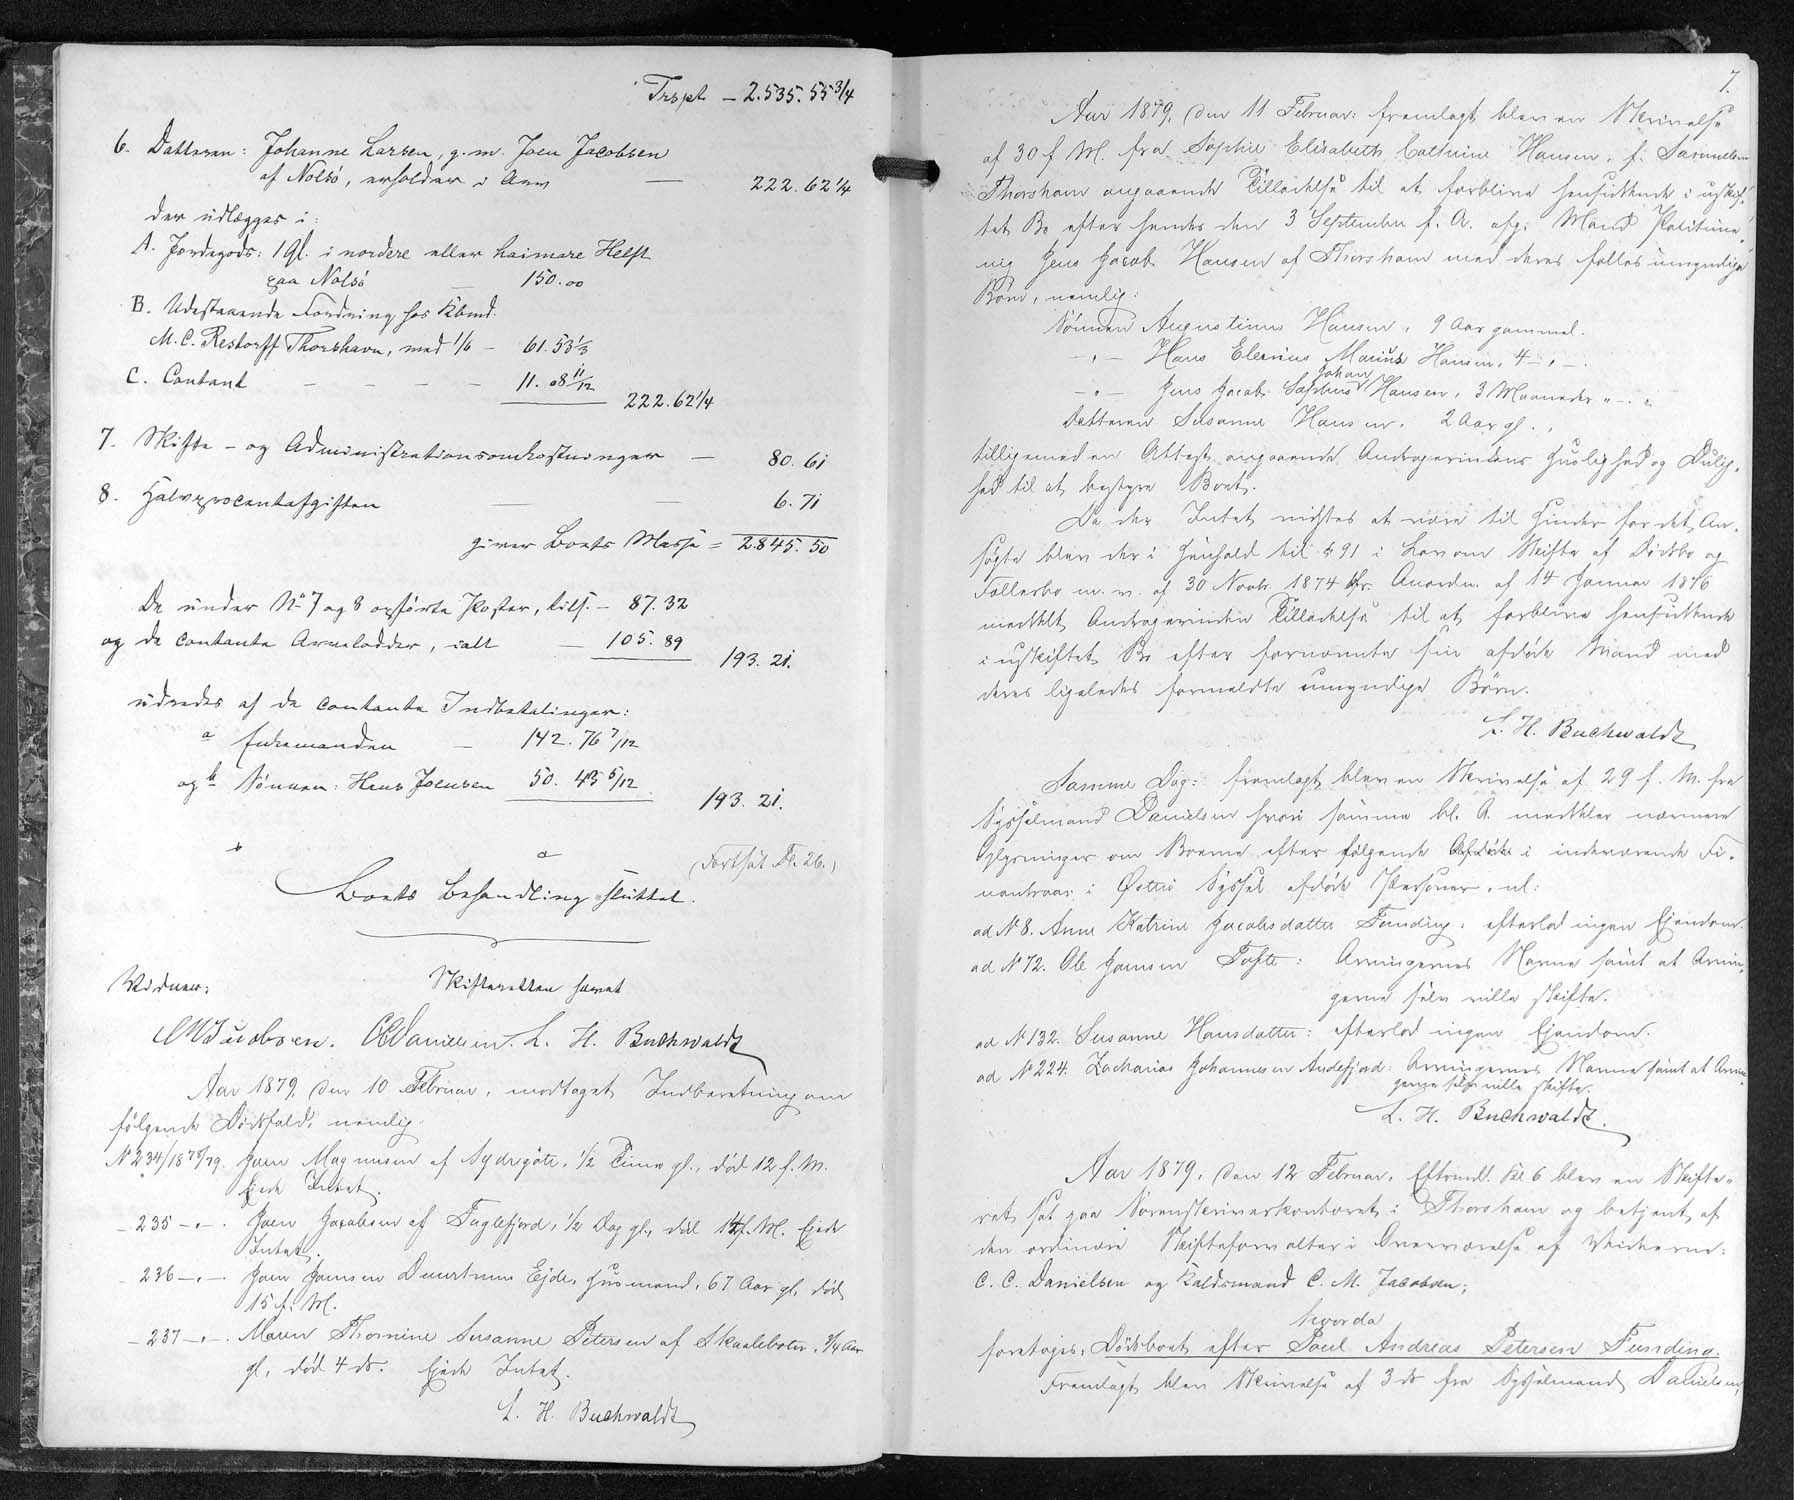 Trspt. – 2.535. 55 3/4
6. Datteren: Johanne Larsen, g. m. Joen Jacobsen
af Nolsö, erholder i Arv — 222. 62 1/4
der udlægges i:
A. Jordegods: 1 Gl. i nordre eller heimare Helft
paa Nolsö — 150. 00
B. Udestaaende Fordring hos Kbmd.
M. C. Restorff Thorshavn, med 1/6 – 61. 53 1/3
C. Contant – – – – 11. 08 11/12
222. 62 1/4
7. Skifte- og Administrationsomkostninger — 80. 61
8. Halvprocentafgiften — — 6. 71
giver Boets Masse = 2.845. 50
De under No 7 og 8 opførte Poster, tils. – 87. 32
og de contante Arvelodder, ialt — 105. 89
193. 21.
udredes af de contante Indbetalinger:
a Enkemanden — 142. 76 7/12
og b Sønnen: Hans Joensen 50. 45 5/12
193. 21.
(Fortsat Fl. 26.)
Boets Behandling sluttet.
Vidner: Skifteretten hævet
CMJacobsen. CCDanielsen. L. H. Buchwaldt
Aar 1879, den 10 Februar, modtaget Indberetning om
følgende Dødsfald, nemlig:
No 234/1878/79. Joen Magnusen af Sydregöte, 1/2 Time gl., død 12 f. M.
Ejede Intet.
– 235 – " –. Joen Jacobsen af Fuglefjord, 1/2 Dag gl., død 14 f. M. Ejede
Intet.
– 236 – " –. Joen Joensen Ejde, Husmand, 67 Aar gl., død
15 f. M.
– 237 – " –. Maren Thomine Susanne Petersen af Skaalebotn, 3/4 Aar
gl., død 4 ds. Ejede Intet.
L. H. Buchwaldt
7.
Aar 1879, den 11 Februar: fremlagt blev en Skrivelse
af 30 f. M. fra Sophie Elisabeth Cathrine Hansen, f. Samuelsen
Thorshavn angaaende Tilladelse til at forblive hensiddende i uskif-
tet Bo efter hendes den 3 September f. A. afg. Mand
Jens Jacob Hansen af Thorshavn med deres fælles umyndige
Børn, nemlig:
Sønnen Augustinus Hansen, 9 Aar gammel.
– " – Hans Marius Hansen, 4 – " –.
Johan
– " – Jens Jacob Sophus Hansen, 3 Maaneder " –. "
Datteren Susanne Hansen, 2 Aar gl.
tilligemed en Attest angaaende Andragerindens Huslighed og Dulig-
hed til at bestyre Boet.
Da der Intet vidstes at være til Hinder for det An-
søgte blev der i Henhold til § 91 i Lov om Skifte af Dødsbo og
Fællesbo m. v. af 30 Novbr. 1874 cfr. Anordn. af 14 Januar 1876
meddelt Andragerinden Tilladelse til at forblive hensiddende
i uskiftet Bo efter fornævnte sin afdøde Mand med
deres ligeledes formeldte umyndige Børn.
L. H. Buchwaldt
Samme Dag: fremlagt blev en Skrivelse af 29 f. M. fra
Sysselmand Danielsen hvori samme bl. A. meddeler nærmere
Oplysninger om Boerne efter følgende i indeværende Fi-
nantsaar i Østerø Syssel afdøde Personer, nl:
ad No 8. Anne Katrine Jacobsdatter Funding: efterlod ingen Ejendom.
ad No 72. Ole Joensen Tofte: Arvingernes Navne samt at Arvin-
gerne selv ville skifte.
ad No 132. Susanne Hansdatter: efterlod ingen Ejendom.
ad No 224. Zacharias Johannesen Andefjord: Arvingernes Navne samt at Arvin-
gerne selv ville skifte.
L. H. Buchwaldt.
Aar 1879, den 12 Februar, Eftermd. Kl 6 blev en Skifte-
ret sat paa Sorenskriverkontoret i Thorshavn og betjent af
den ordinære Skifteforvalter i Overværelse af Vidnerne:
C. C. Danielsen og C. M. Jacobsen;
hvorda
foretoges: Dødsboet efter Poul Andreas Petersen Funding.
Fremlagt blev Skrivelse af 3 ds fra Sysselmand Danielsen,